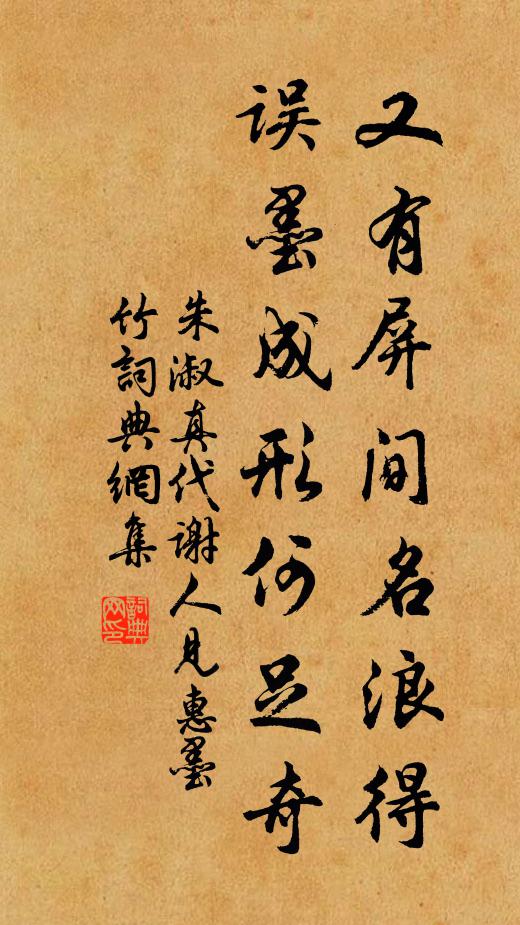 又有屏间名浪得
误墨成形何足奇
朱淑真代谢人见惠墨
竹詞典網集
詞典网印